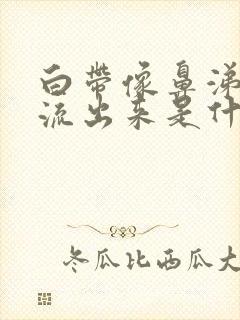 白带像鼻涕
流出来是什
冬瓜比西瓜大